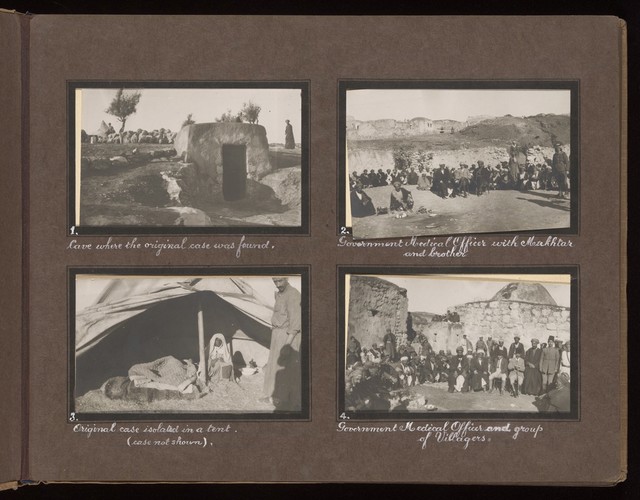 1.
Cave where the original case was found.
2.
Government Medical Officer with Mukhtar
and brother
3.
Original case isolated in a tent.
(case not shown).
4.
Government Medical Officer and group
of Villagers.